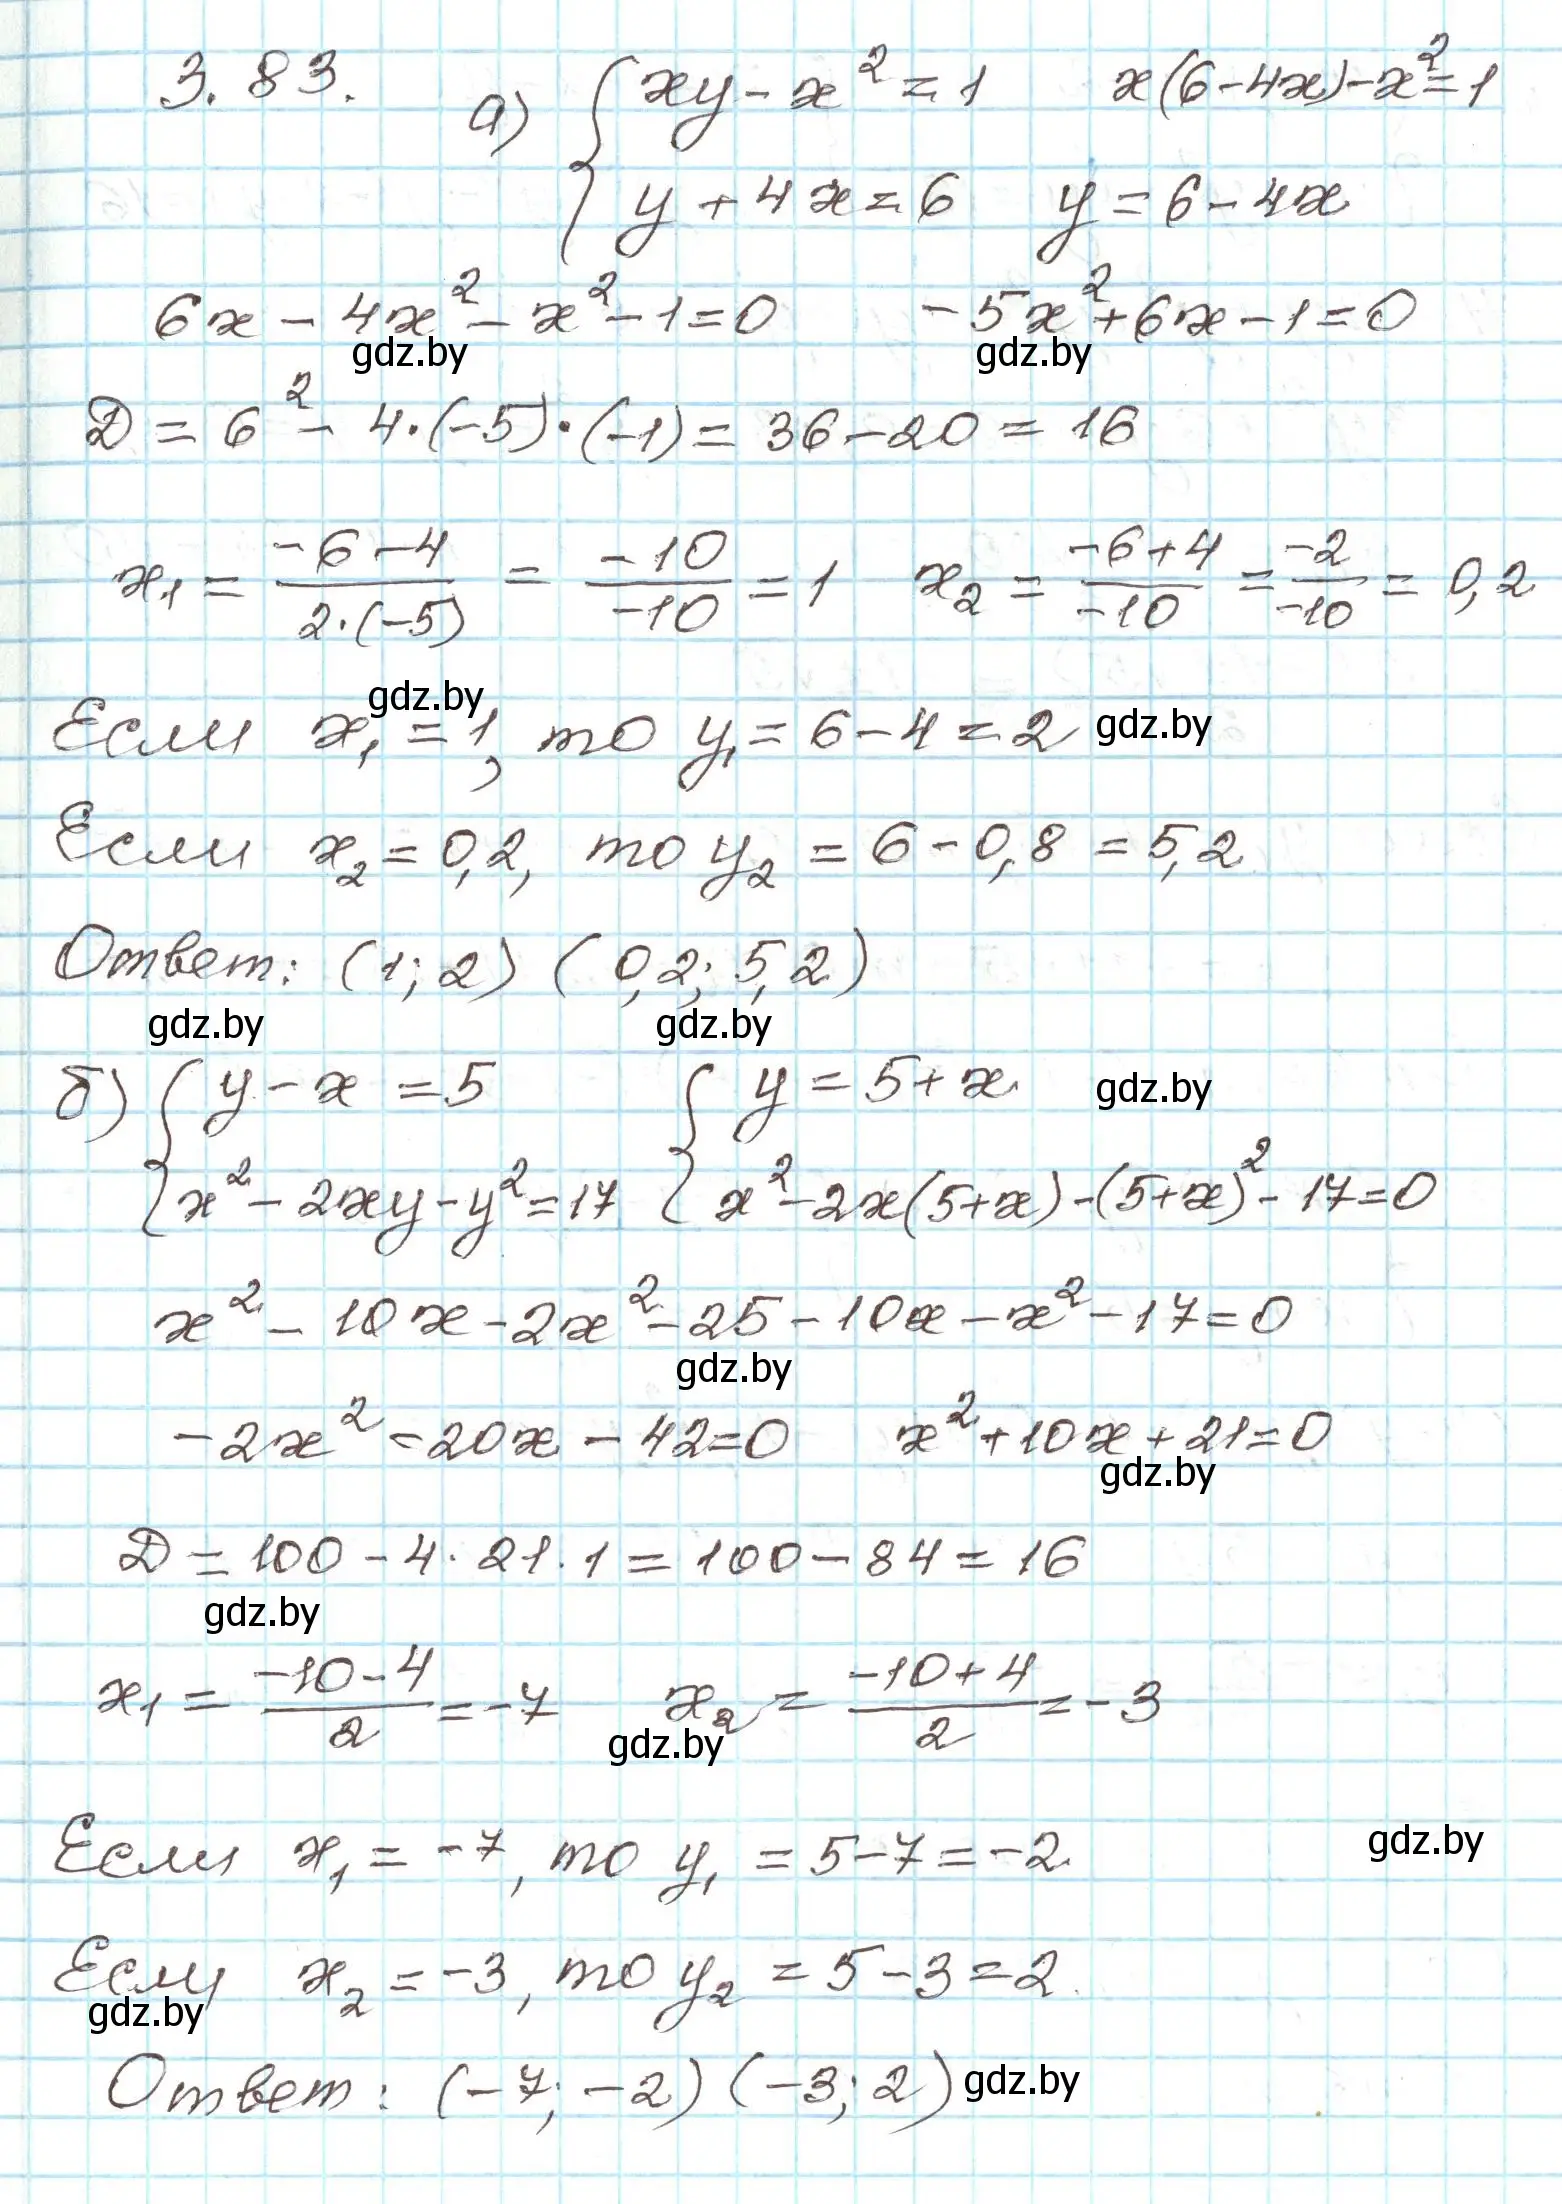 3.83. а) { xy - x² = 1    x(6-4x) - x² = 1
{ y + 4x = 6    y = 6 - 4x
6x - 4x² - x² - 1 = 0    -5x² + 6x - 1 = 0
gdz.by    gdz.by
D = 6² - 4·(-5)·(-1) = 36 - 20 = 16
x₁ = (-6-4)/(2·(-5)) = (-10)/(-10) = 1    x₂ = (-6+4)/(-10) = (-2)/(-10) = 0,2
gdz.by
Если x₁ = 1, то y₁ = 6 - 4 = 2    gdz.by
Если x₂ = 0,2, то y₂ = 6 - 0,8 = 5,2
Ответ: (1; 2) (0,2; 5,2)
gdz.by    gdz.by
б) { y - x = 5    { y = 5 + x    gdz.by
{ x² - 2xy - y² = 17    { x² - 2x(5+x) - (5+x)² - 17 = 0
x² - 10x - 2x² - 25 - 10x - x² - 17 = 0
gdz.by
-2x² - 20x - 42 = 0    x² + 10x + 21 = 0
gdz.by
D = 100 - 4·21·1 = 100 - 84 = 16
gdz.by
x₁ = (-10-4)/2 = -7    x₂ = (-10+4)/2 = -3
gdz.by
Если x₁ = -7, то y₁ = 5 - 7 = -2.    gdz.by
Если x₂ = -3, то y₂ = 5 - 3 = 2.
gdz.by
Ответ: (-7; -2) (-3; 2)    gdz.by